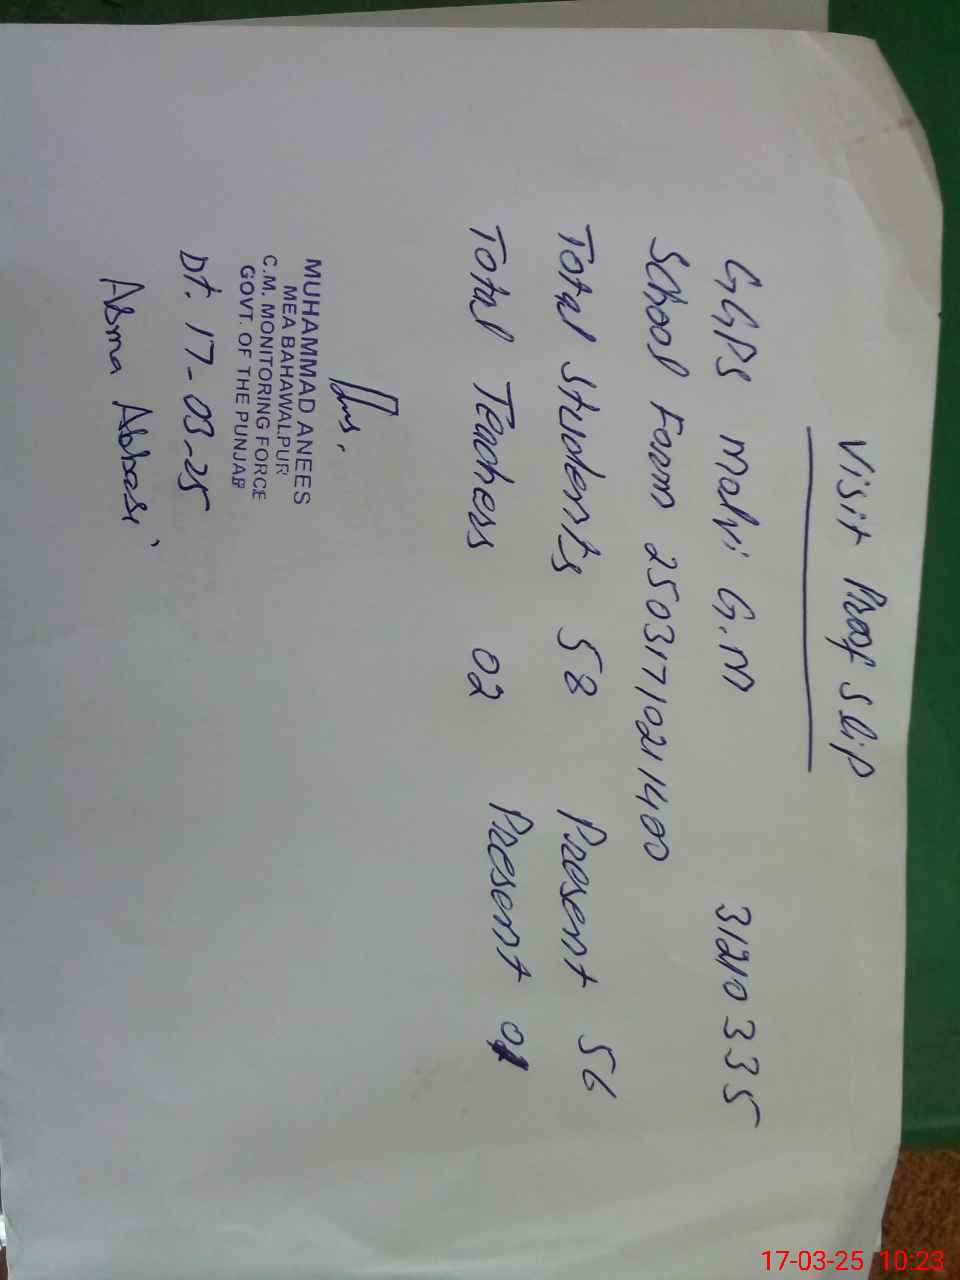 Visit Proof Slip
GGPS Malvi G.M 31210335
School Form 25031710211400
Total Students 58 Present 56
Total Teachers 02 Present 01
MUHAMMAD ANEES
MEA BAHAWALPUR
C.M. MONITORING FORCE
GOVT. OF THE PUNJAB
Dt. 17-03-25
Asma Abbasi
17-03-25 10:23